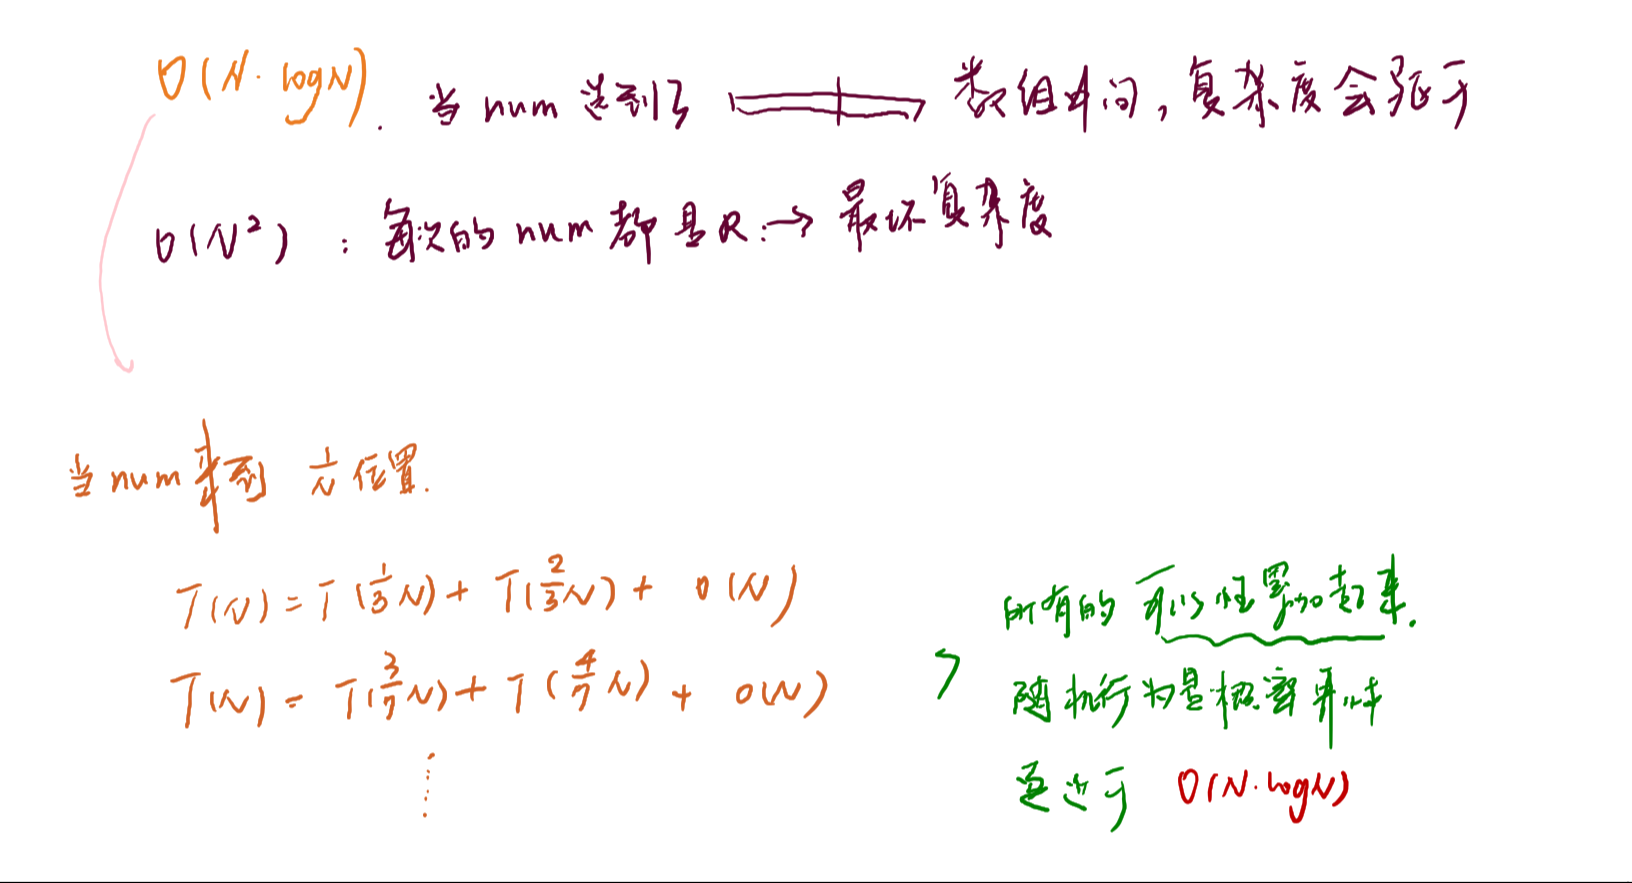 O(N·logN). 当 num 选到了 数组中间, 复杂度会驱于
O(N²) : 每次的 num 都是 R → 最坏复杂度
当 num 来到 1/N 位置.
T(N) = T(1/3 N) + T(2/3 N) + O(N)
T(N) = T(3/7 N) + T(4/7 N) + O(N)
⋮
所有的可以性累加起来.
随机行为是概率事件
逼近于 O(N·logN)